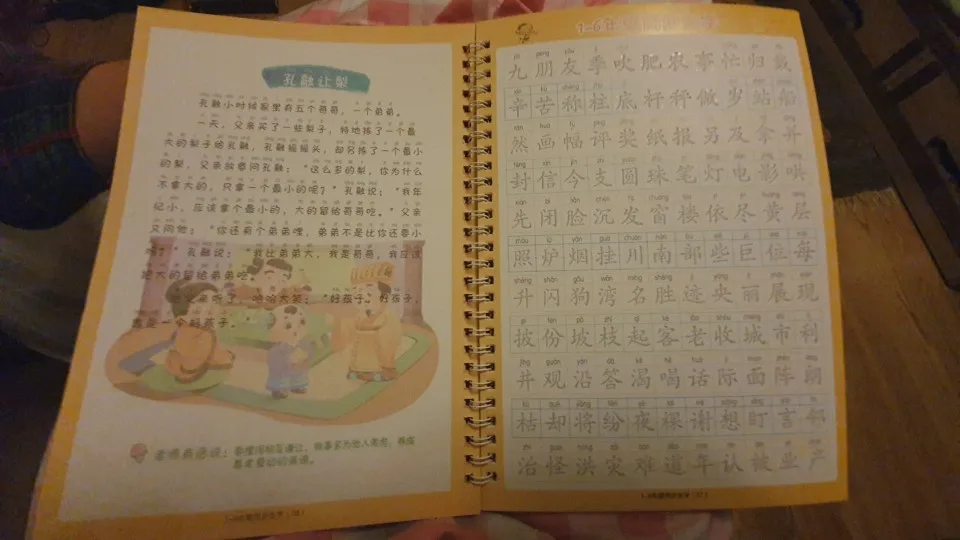 孔融让梨
孔融小时候家里有五个哥哥，一个弟弟。
一天，父亲买了一些梨子，特地拣了一个最
大的梨子给孔融，孔融摇摇头，却另拣了一个最小
的梨，父亲故意问孔融：“这么多的梨，你为什么
不拿大的，只拿一个最小的呢？”孔融说：“我年
纪小，应该拿个最小的，大的留给哥哥吃。”父亲
又问他：“你还有个弟弟哩，弟弟不是比你还要小
吗？”孔融说：“我比弟弟大，我是哥哥，我应该
把大的留给弟弟吃。”
他父亲听了，哈哈大笑：“好孩子，好孩子，
真是一个好孩子。”
1-6年
九朋友季吹肥农事忙归戴
辛苦称柱底杆秤做岁站船
然画幅评奖纸报另及拿并
封信今支圆珠笔灯电影哄
先闭脸沉发窗楼依尽黄层
照炉烟挂川南部些巨位每
升闪狗湾名胜迹央丽展现
披份坡枝起客老收城市利
井观沿答渴喝话际面阵朗
枯却将纷夜棵谢想盯言邻
治怪洪灾难道年认被业产